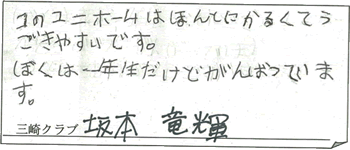 このユニホームはほんとにかるくてう
ごきやすいです。
ぼくは一年生だけどがんばっていま
す。
三崎クラブ 坂本 竜輝